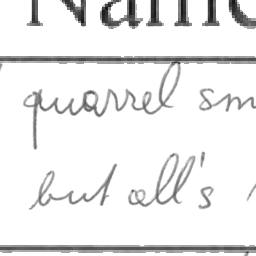 Name
quarrel sm
but all's